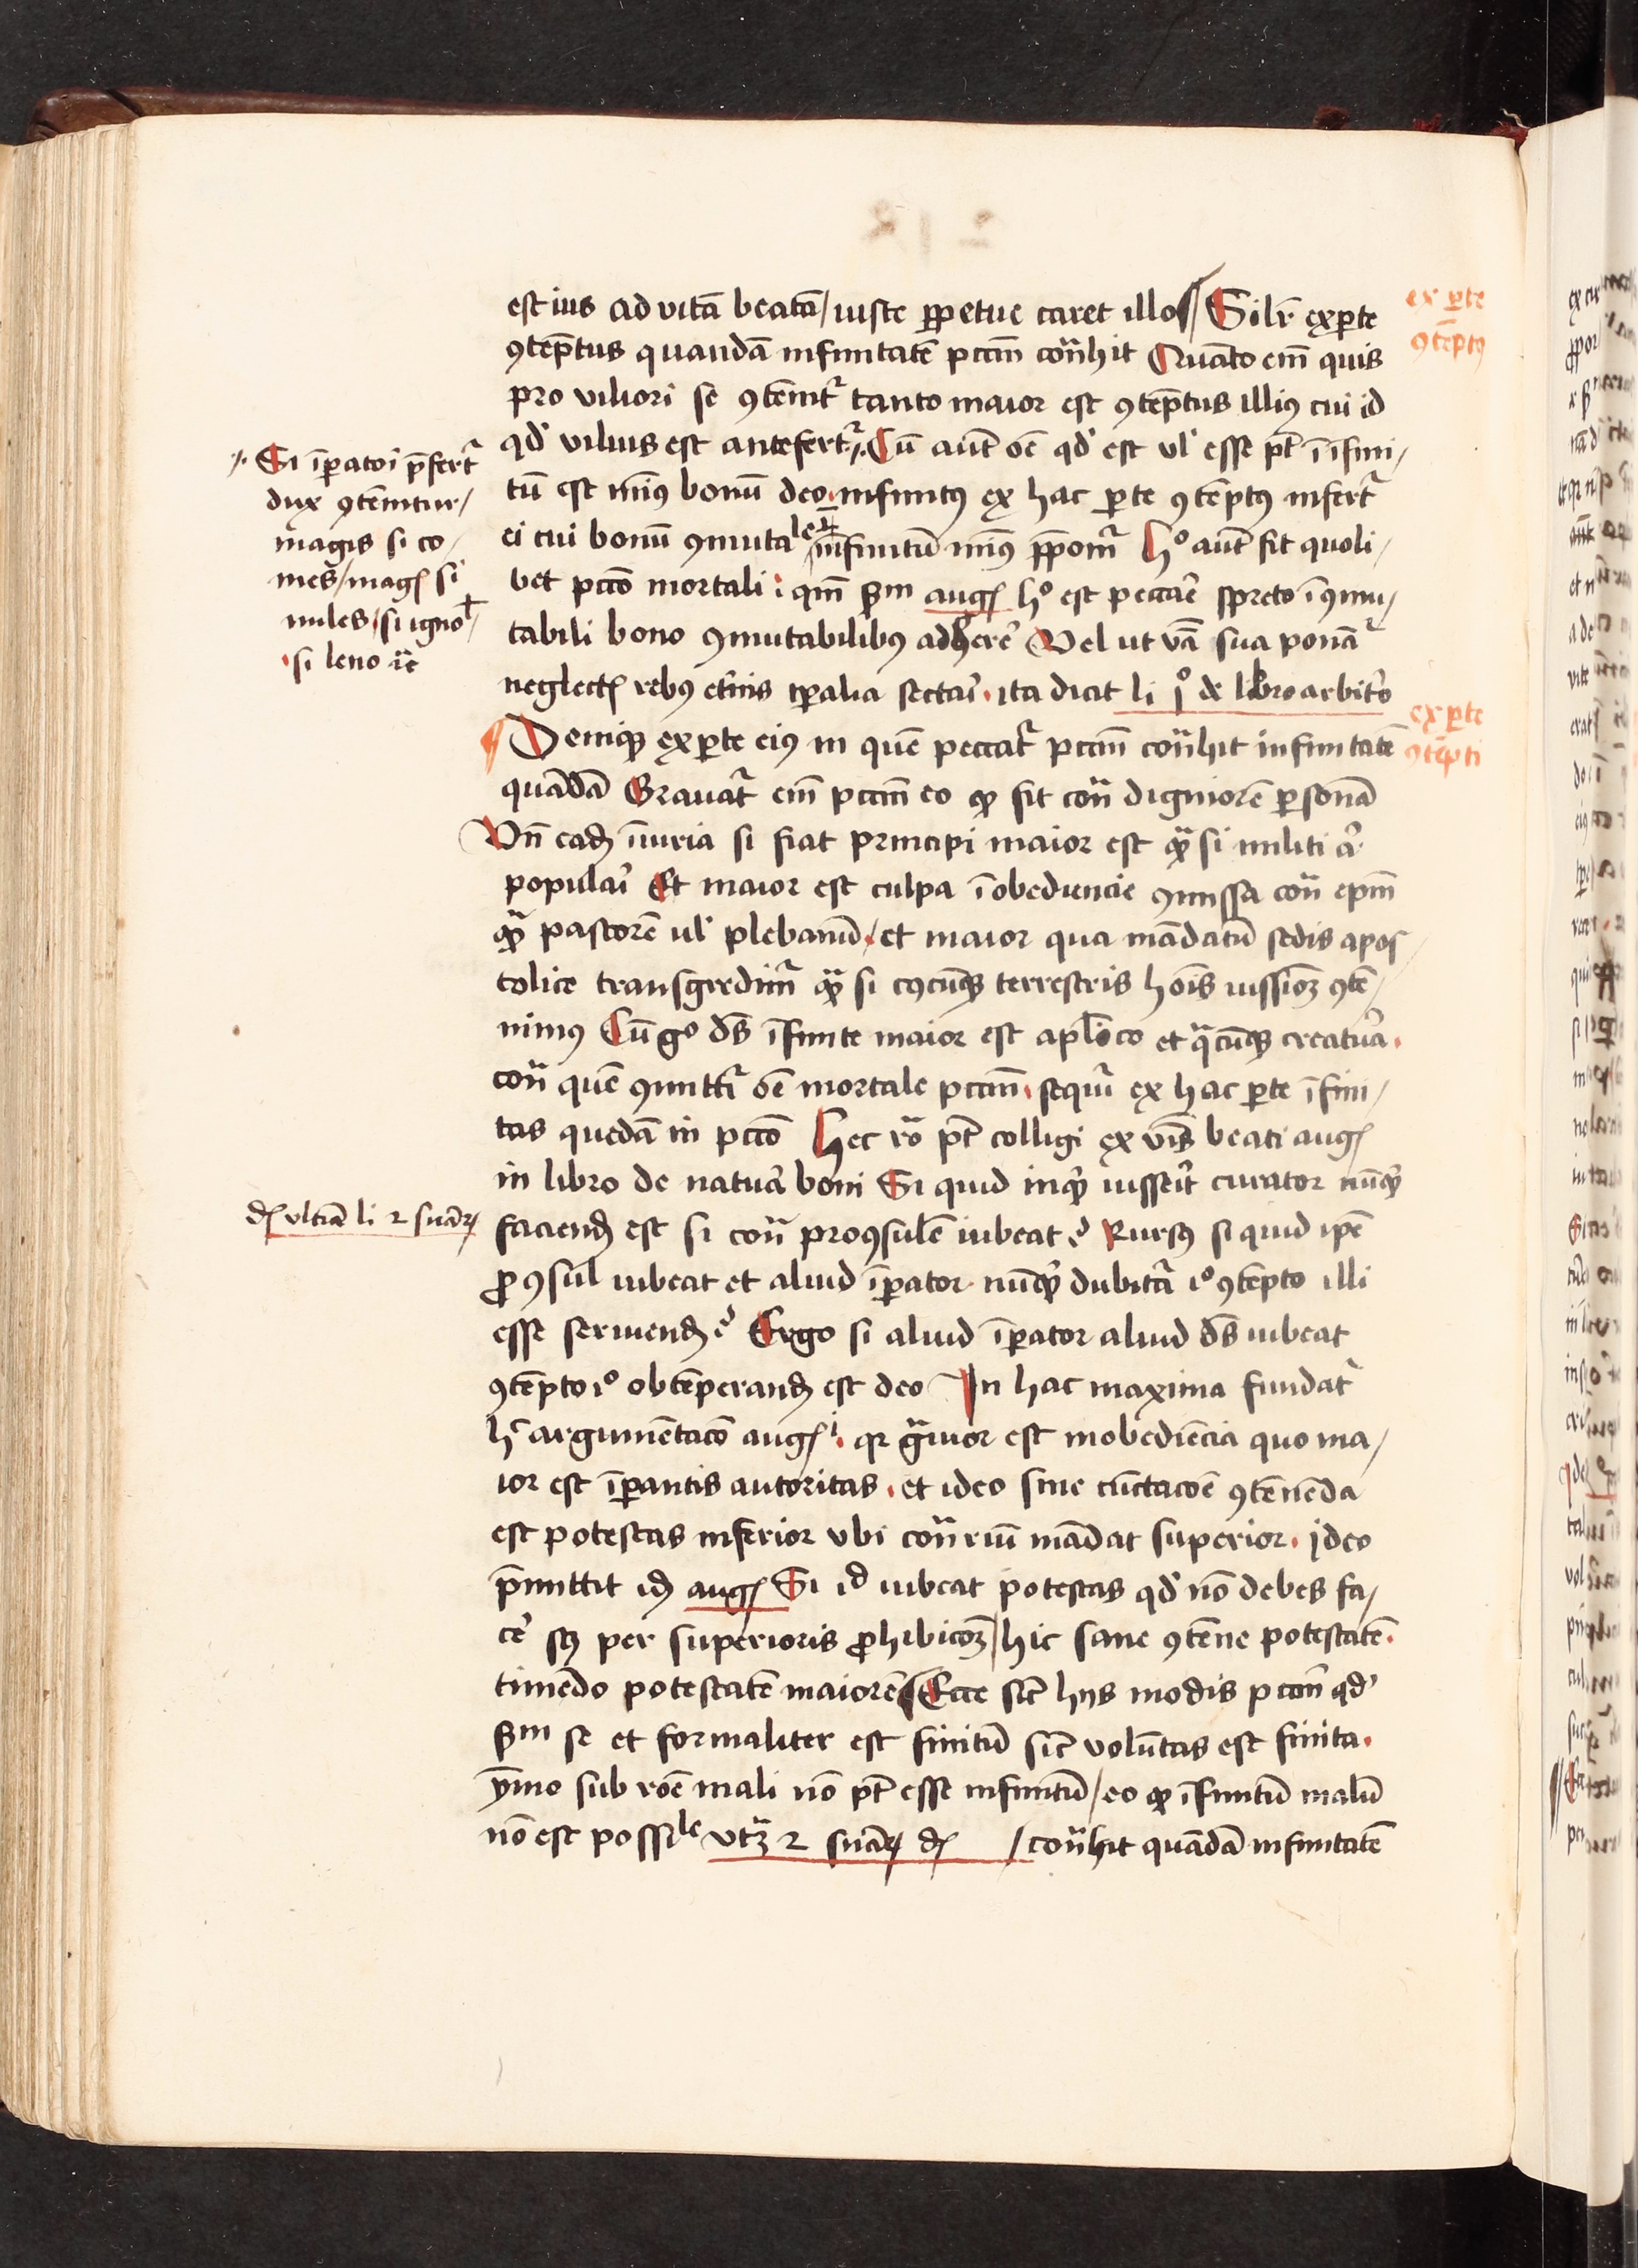 est ius ad vitā beatā / iuste ꝑpetue caret illo // Silr̄ ex ꝑte
ꝯtēptus quandā infinitatē pccm̄ cont̄hit Quāto em̄ quis
pro viliori se ꝯtēnit᷑ tanto maior est ꝯtēptus illiꝰ cui id
qd' viliꝰ est antefert᷑ ·/. Cū aut̄ oē qd' est vl' esse pt̄ ī īfini/
tū est minꝰ bonū deo · infinitꝰ ex hac ꝑte ꝯtēptꝰ infert᷑
ei cui bonū ꝯmutale et infinitū minꝰ p̄pom̄r hº aut̄ fit quoli/
bet pccō mortali : qm̄ ẜm augꝭ hº est peccāe spreto īꝯmu/
tabili bono ꝯmutabilibꝰ adherē Vel ut v̄ba sua ponā
neglectꝭ rebꝰ et̄nis tꝑalia sectāi · ita dicit li jº de libero arbit̄o
¶ Deniqꝫ ex ꝑte eiꝰ in quē peccat᷑ pccm̄ cont̄hit infinitatē
quādā Grauat᷑ em̄ pccm̄ eo ꝙ fit cont̄ digniorē ꝑsonā
Vn̄ eadꝫ iniuria si fiat principi maior est ꝙ̄ si militi a'
populāi Et maior est culpa īobediencie ꝯmissa cont̄ epm̄
ꝙ̄ pastorē ul' plebanū · / et maior qua mādatū sedis apos
tolice transgredim̄r ꝙ̄ si cꝰcūqꝫ terrestris hoīs iussionꝫ ꝯtē/
nimꝰ Cū gº dꝰs īfinite maior est aplico et q̄cūqꝫ creatura ·
cont̄ quē ꝯmittit᷑ oē mortale pccm̄ · sequit᷑ ex hac ꝑte īfini/
tas quedā in pccō Hec rō pt̄ colligi ex v̄bis beati augꝭ
in libro de natura boni Si quid inqꝫ iusserit curator nūqꝫ
faciendꝫ est si cont̄ proꝯsulē iubeat ? Rursꝰ si quid ip̄e
ꝓꝯsul iubeat et aliud īꝑator · nūqꝫ dubitāt᷑ iº ꝯtēpto illi
esse seruiendꝫ ? Ergo si aliud īꝑator aliud dꝰs iubeat
ꝯtēpto iº obtēperandꝫ est deo In hac maxima fundat᷑
hꝰ argumētacō augꝭⁱ · qꝛ gͣuior est inobediēcia quo ma/
ior est īꝑantis autoritas · et ideo sine cūctacōe ꝯtēnenda
est potestas inferior vbi cont̄riū mādat superior · ideo
p̄mittit idꝫ augꝭ Si id iubeat potestas qd' nō debes fa/
cē sꝫ per superioris ꝓhibicōꝫ / hic sane ꝯtēne potestatē ·
timēdo potestatē maiorē // Ecce sic̄ hys modis pccm̄ qd'
ẜm se et formaliter est finitū sic̄ volūtas est finita ·
ȳmo sub rōe mali nō pt̄ esse infinitū / eo ꝙ īfinitū malū
nō est possiˡᵉ vtꝫ 2 sn̄aꝝ dꝭ / cont̄hit quādā infinitatē
·/. Si īꝑatoi p̄fert᷑
dux ꝯtēnitur /
magis si co/
mes / magꝭ si
miles / si ignol' /
· si leno ⁊c̄
dꝭ vltīa li 2 sn̄aꝝ
ex ꝑte
ꝯtēptꝰ
ex ꝑte
ꝯtēpti